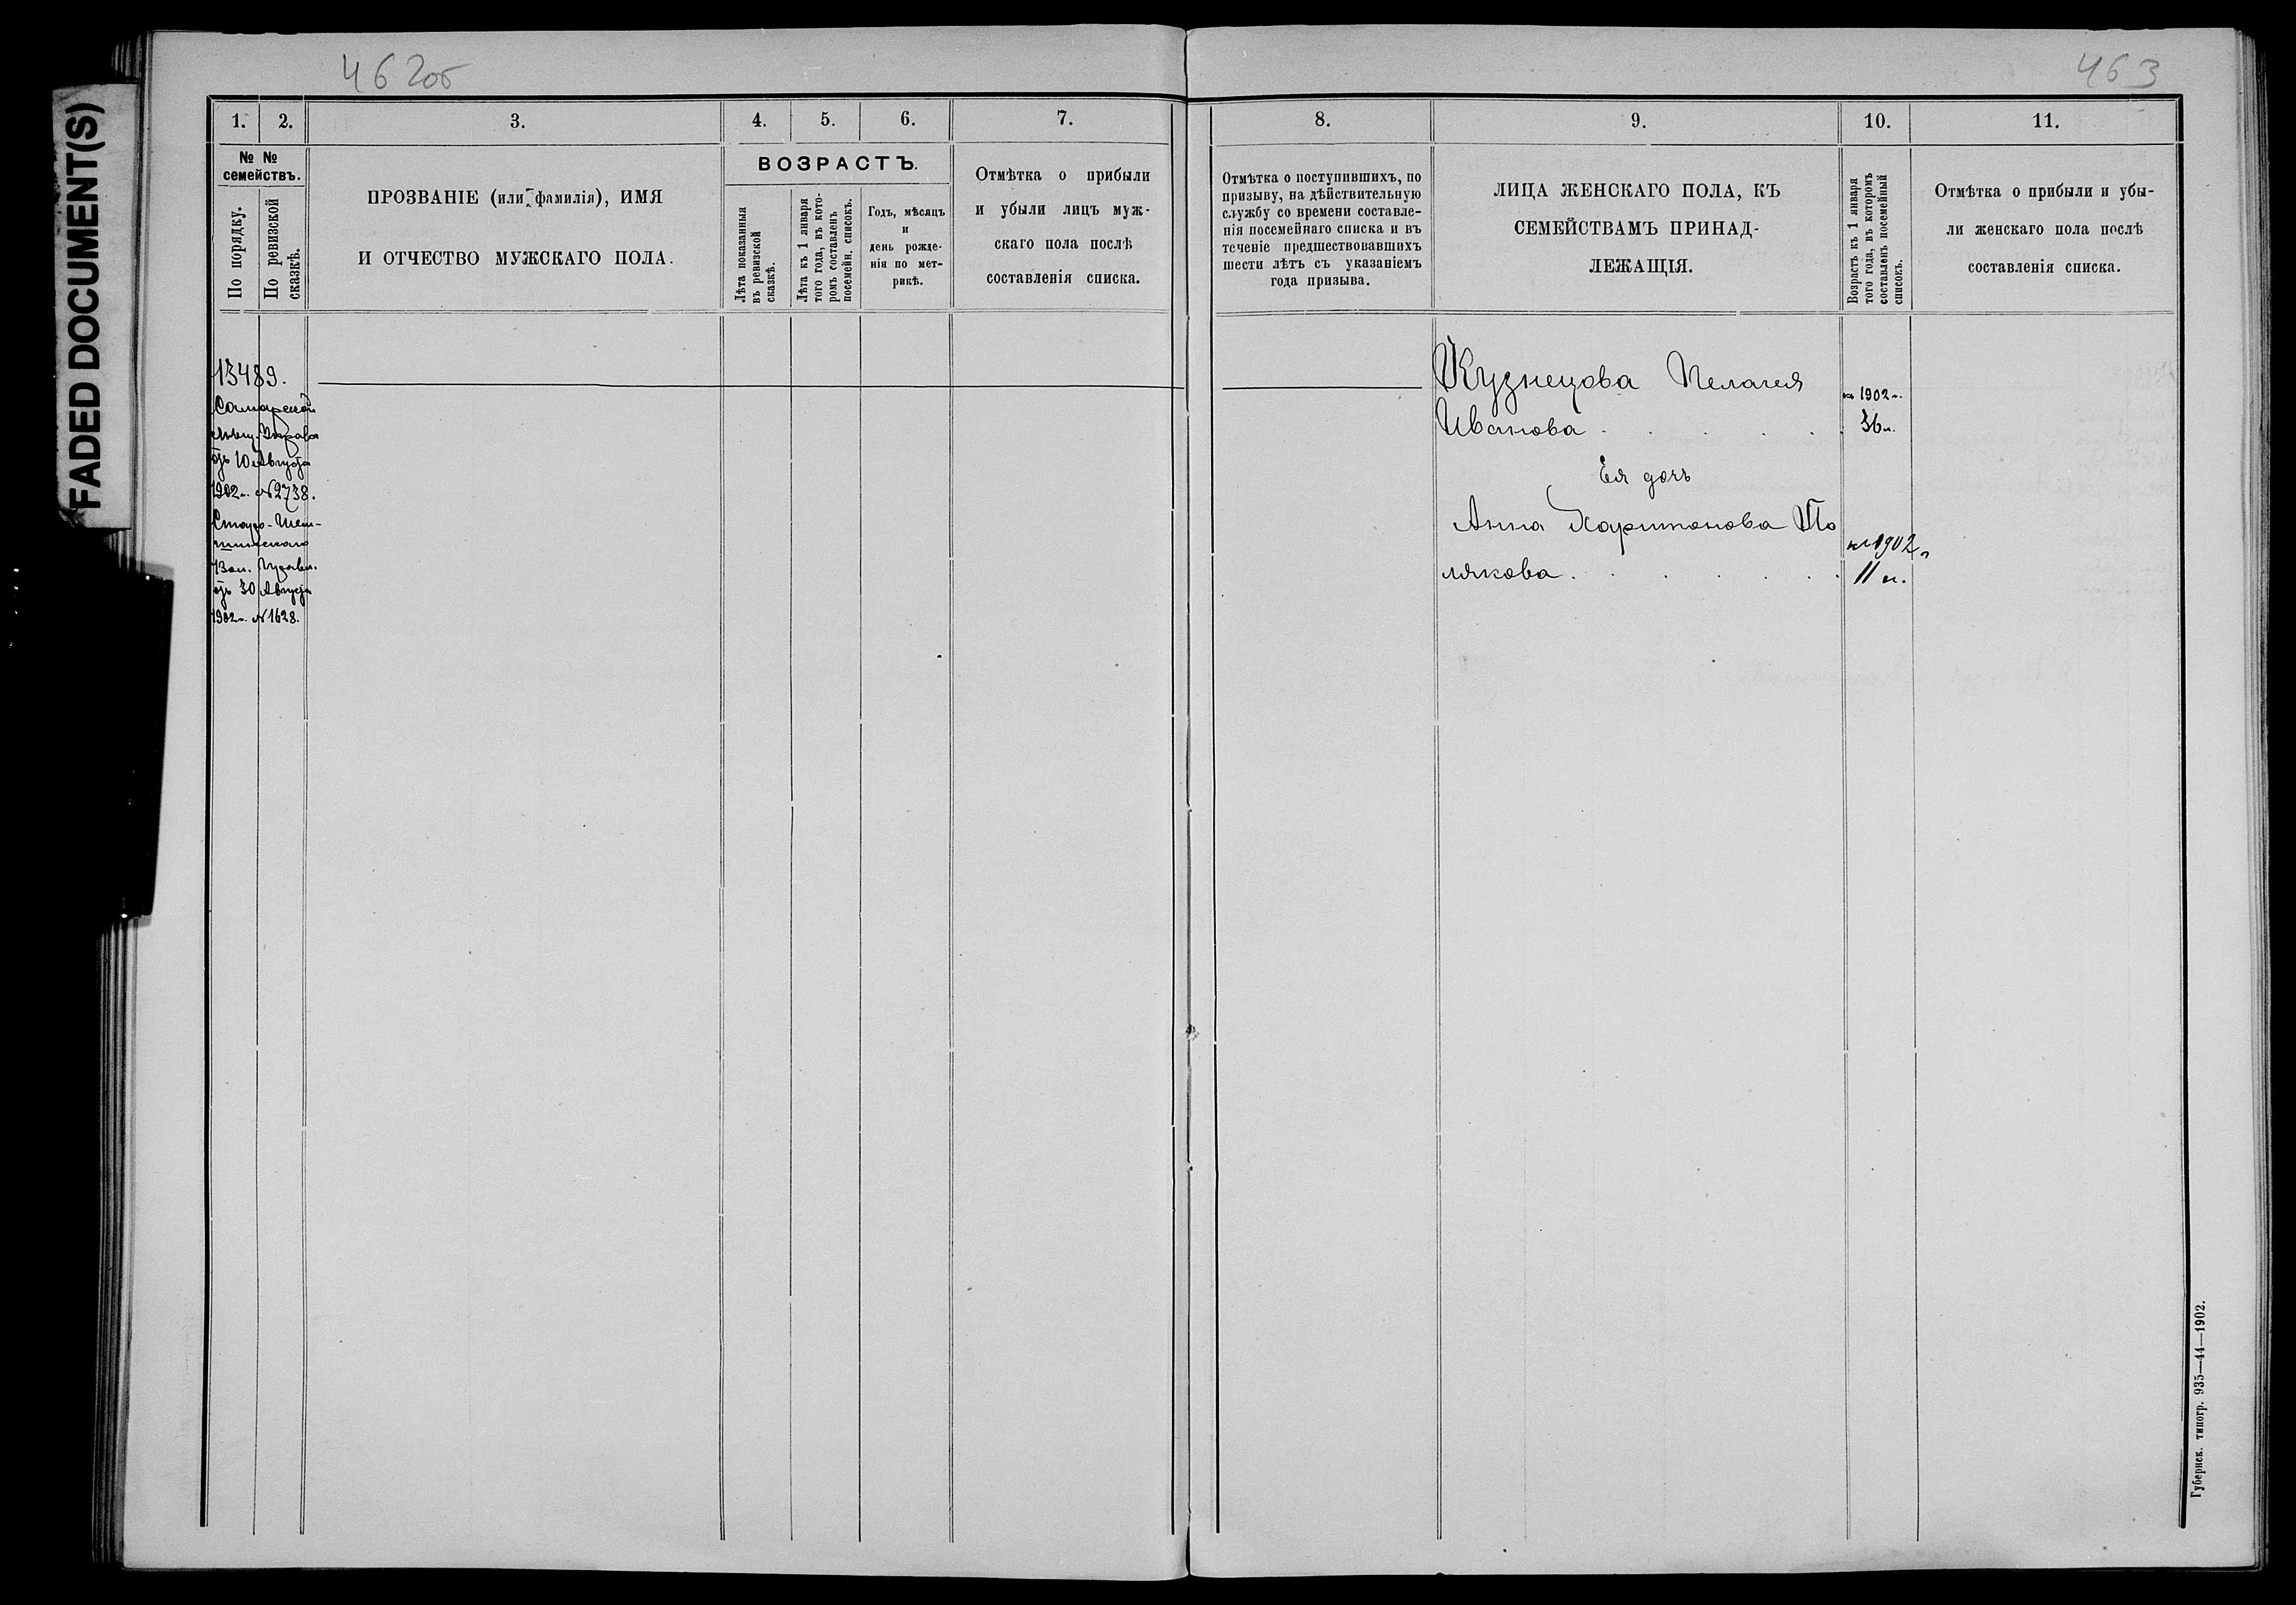 FADED DOCUMENT(S)
462об
463
1. 2. 3. 4. 5. 6. 7.
№ № семействъ.
По порядку.
По ревизской сказкѣ.
ПРОЗВАНІЕ (или фамилія), ИМЯ
И ОТЧЕСТВО МУЖСКАГО ПОЛА.
ВОЗРАСТЪ.
Лѣта показанныя
въ ревизской
сказкѣ.
Лѣта къ 1 января
того года, въ кото-
ромъ составленъ
посемейн. списокъ.
Годъ, мѣсяцъ
и
день рожде-
нія по мет-
рикѣ.
Отмѣтка о прибыли
и убыли лицъ муж-
скаго пола послѣ
составленія списка.
13489.
Самарской
Мѣщ. Управы
отъ 10 Августа
1902 г. №2738.
Старо-
Вол. Правл.
отъ 30 Августа
1902 г. №1628.
8. 9. 10. 11.
Отмѣтка о поступившихъ, по
призыву, на дѣйствительную
службу со времени составле-
нія посемейнаго списка и въ
теченіе предшествовавшихъ
шести лѣтъ съ указаніемъ
года призыва.
ЛИЦА ЖЕНСКАГО ПОЛА, КЪ
СЕМЕЙСТВАМЪ ПРИНАД-
ЛЕЖАЩІЯ.
Возрастъ къ 1 января
того года, въ которомъ
составленъ посемейный
списокъ.
Отмѣтка о прибыли и убы-
ли женскаго пола послѣ
составленія списка.
Кузнецова Пелагея
на 1902 г.
Иванова . . . . . 36 л.
Ея дочь
Анна Харитонова По
на 1902 г.
лякова . . . . . . 11 л.
Губернск. типогр. 935—44—1902.